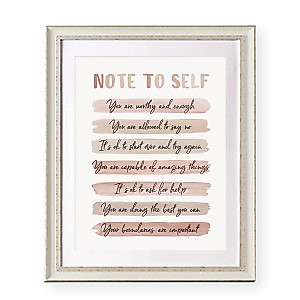 NOTE TO SELF
You are worthy and enough
You are allowed to say no
It's ok to start over and try again
You are capable of amazing things
It's ok to ask for help
You are doing the best you can
Your boundaries are important